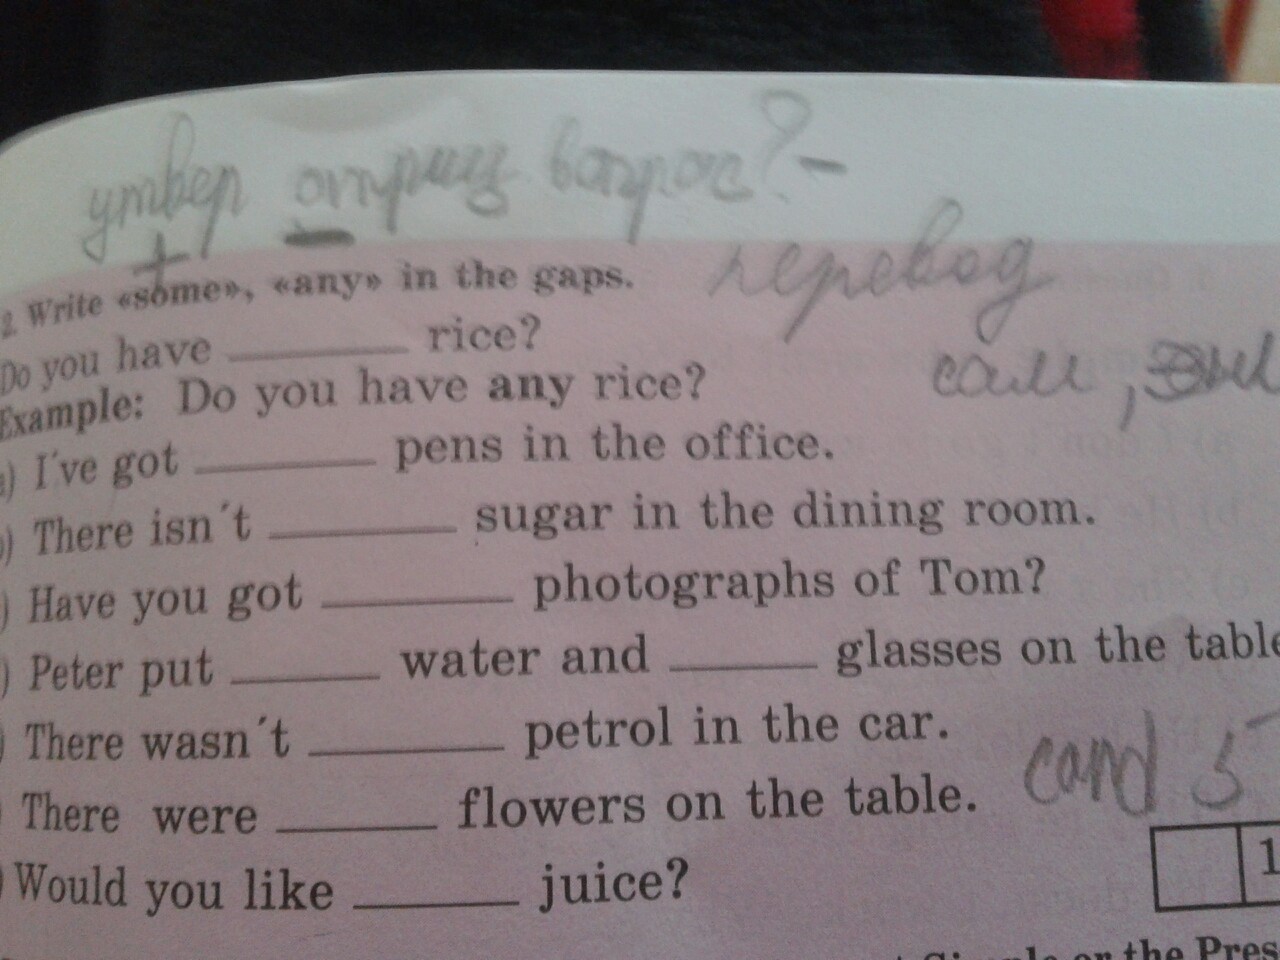 утвер отриц вопрос? -
+ —
перевод
2. Write «some», «any» in the gaps.
Do you have ________ rice?
сам,
Example: Do you have any rice?
) I've got ________ pens in the office.
) There isn´t ________ sugar in the dining room.
) Have you got ________ photographs of Tom?
) Peter put ______ water and ______ glasses on the table
) There wasn´t ________ petrol in the car.
There were ______ flowers on the table.
) Would you like ______ juice?
1
or the Pres